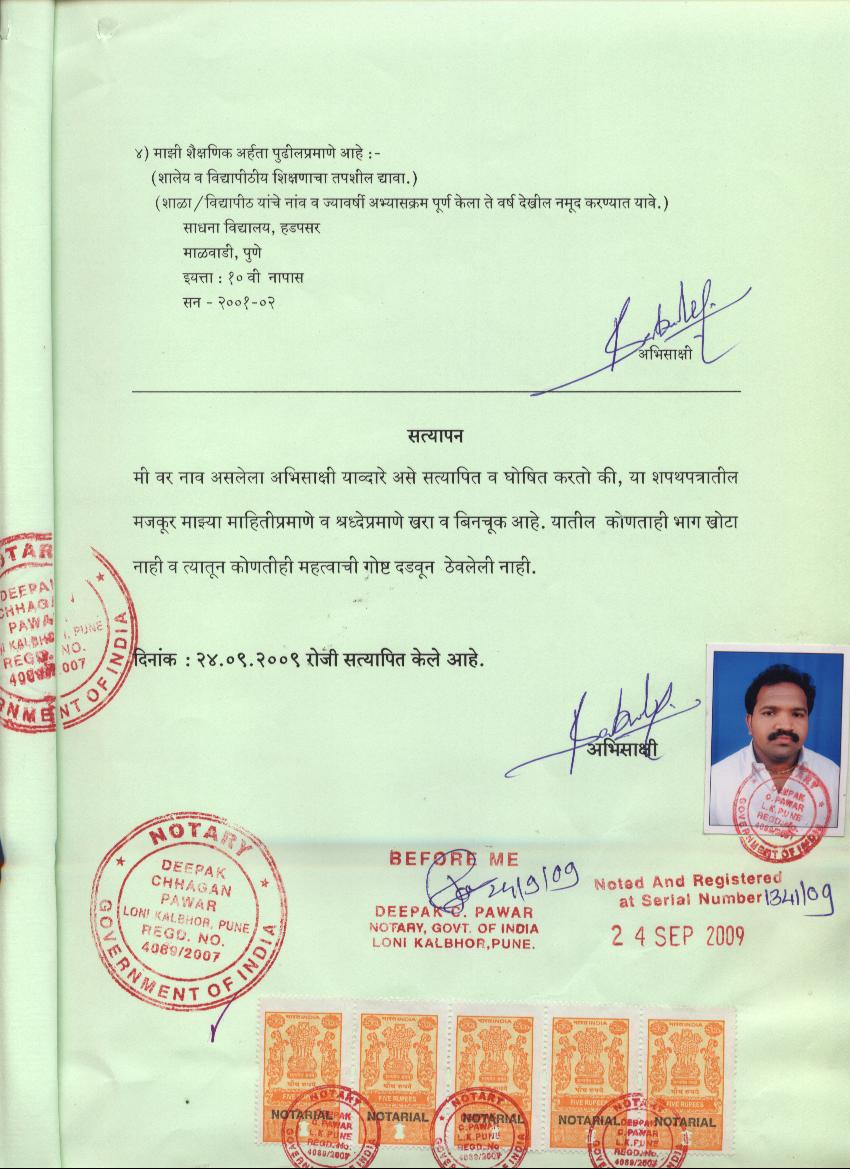 ४) माझी शैक्षणिक अर्हता पुढीलप्रमाणे आहे :-
(शालेय व विद्यापीठीय शिक्षणाचा तपशील द्यावा.)
(शाळा/विद्यापीठ यांचे नांव व ज्यावर्षी अभ्यासक्रम पूर्ण केला ते वर्ष देखील नमूद करण्यात यावे.)
साधना विद्यालय, हडपसर
माळवाडी, पुणे
इयत्ता : १० वी नापास
सन - २००१-०२
अभिसाक्षी
सत्यापन
मी वर नाव असलेला अभिसाक्षी याव्दारे असे सत्यापित व घोषित करतो की, या शपथपत्रातील
मजकूर माझ्या माहितीप्रमाणे व श्रध्देप्रमाणे खरा व बिनचूक आहे. यातील कोणताही भाग खोटा
नाही व त्यातून कोणतीही महत्वाची गोष्ट दडवून ठेवलेली नाही.
दिनांक : २४.०९.२००९ रोजी सत्यापित केले आहे.
अभिसाक्षी
NOTARY
DEEPAK
CHHAGAN
PAWAR
LONI KALBHOR, PUNE
REGD. NO.
4089/2007
GOVERNMENT OF INDIA
BEFORE ME
24/9/09
DEEPAK C. PAWAR
NOTARY, GOVT. OF INDIA
LONI KALBHOR, PUNE.
Noted And Registered
at Serial Number 1341/09
24 SEP 2009
DEEPAK
C. PAWAR
L.K. PUNE
REGD. No.
4089/2007
GOVERNMENT OF INDIA
भारत INDIA
पाँच रुपये
FIVE RUPEES
NOTARIAL
भारत INDIA
पाँच रुपये
FIVE RUPEES
NOTARIAL
भारत INDIA
पाँच रुपये
FIVE RUPEES
NOTARIAL
भारत INDIA
पाँच रुपये
FIVE RUPEES
NOTARIAL
भारत INDIA
पाँच रुपये
FIVE RUPEES
NOTARIAL